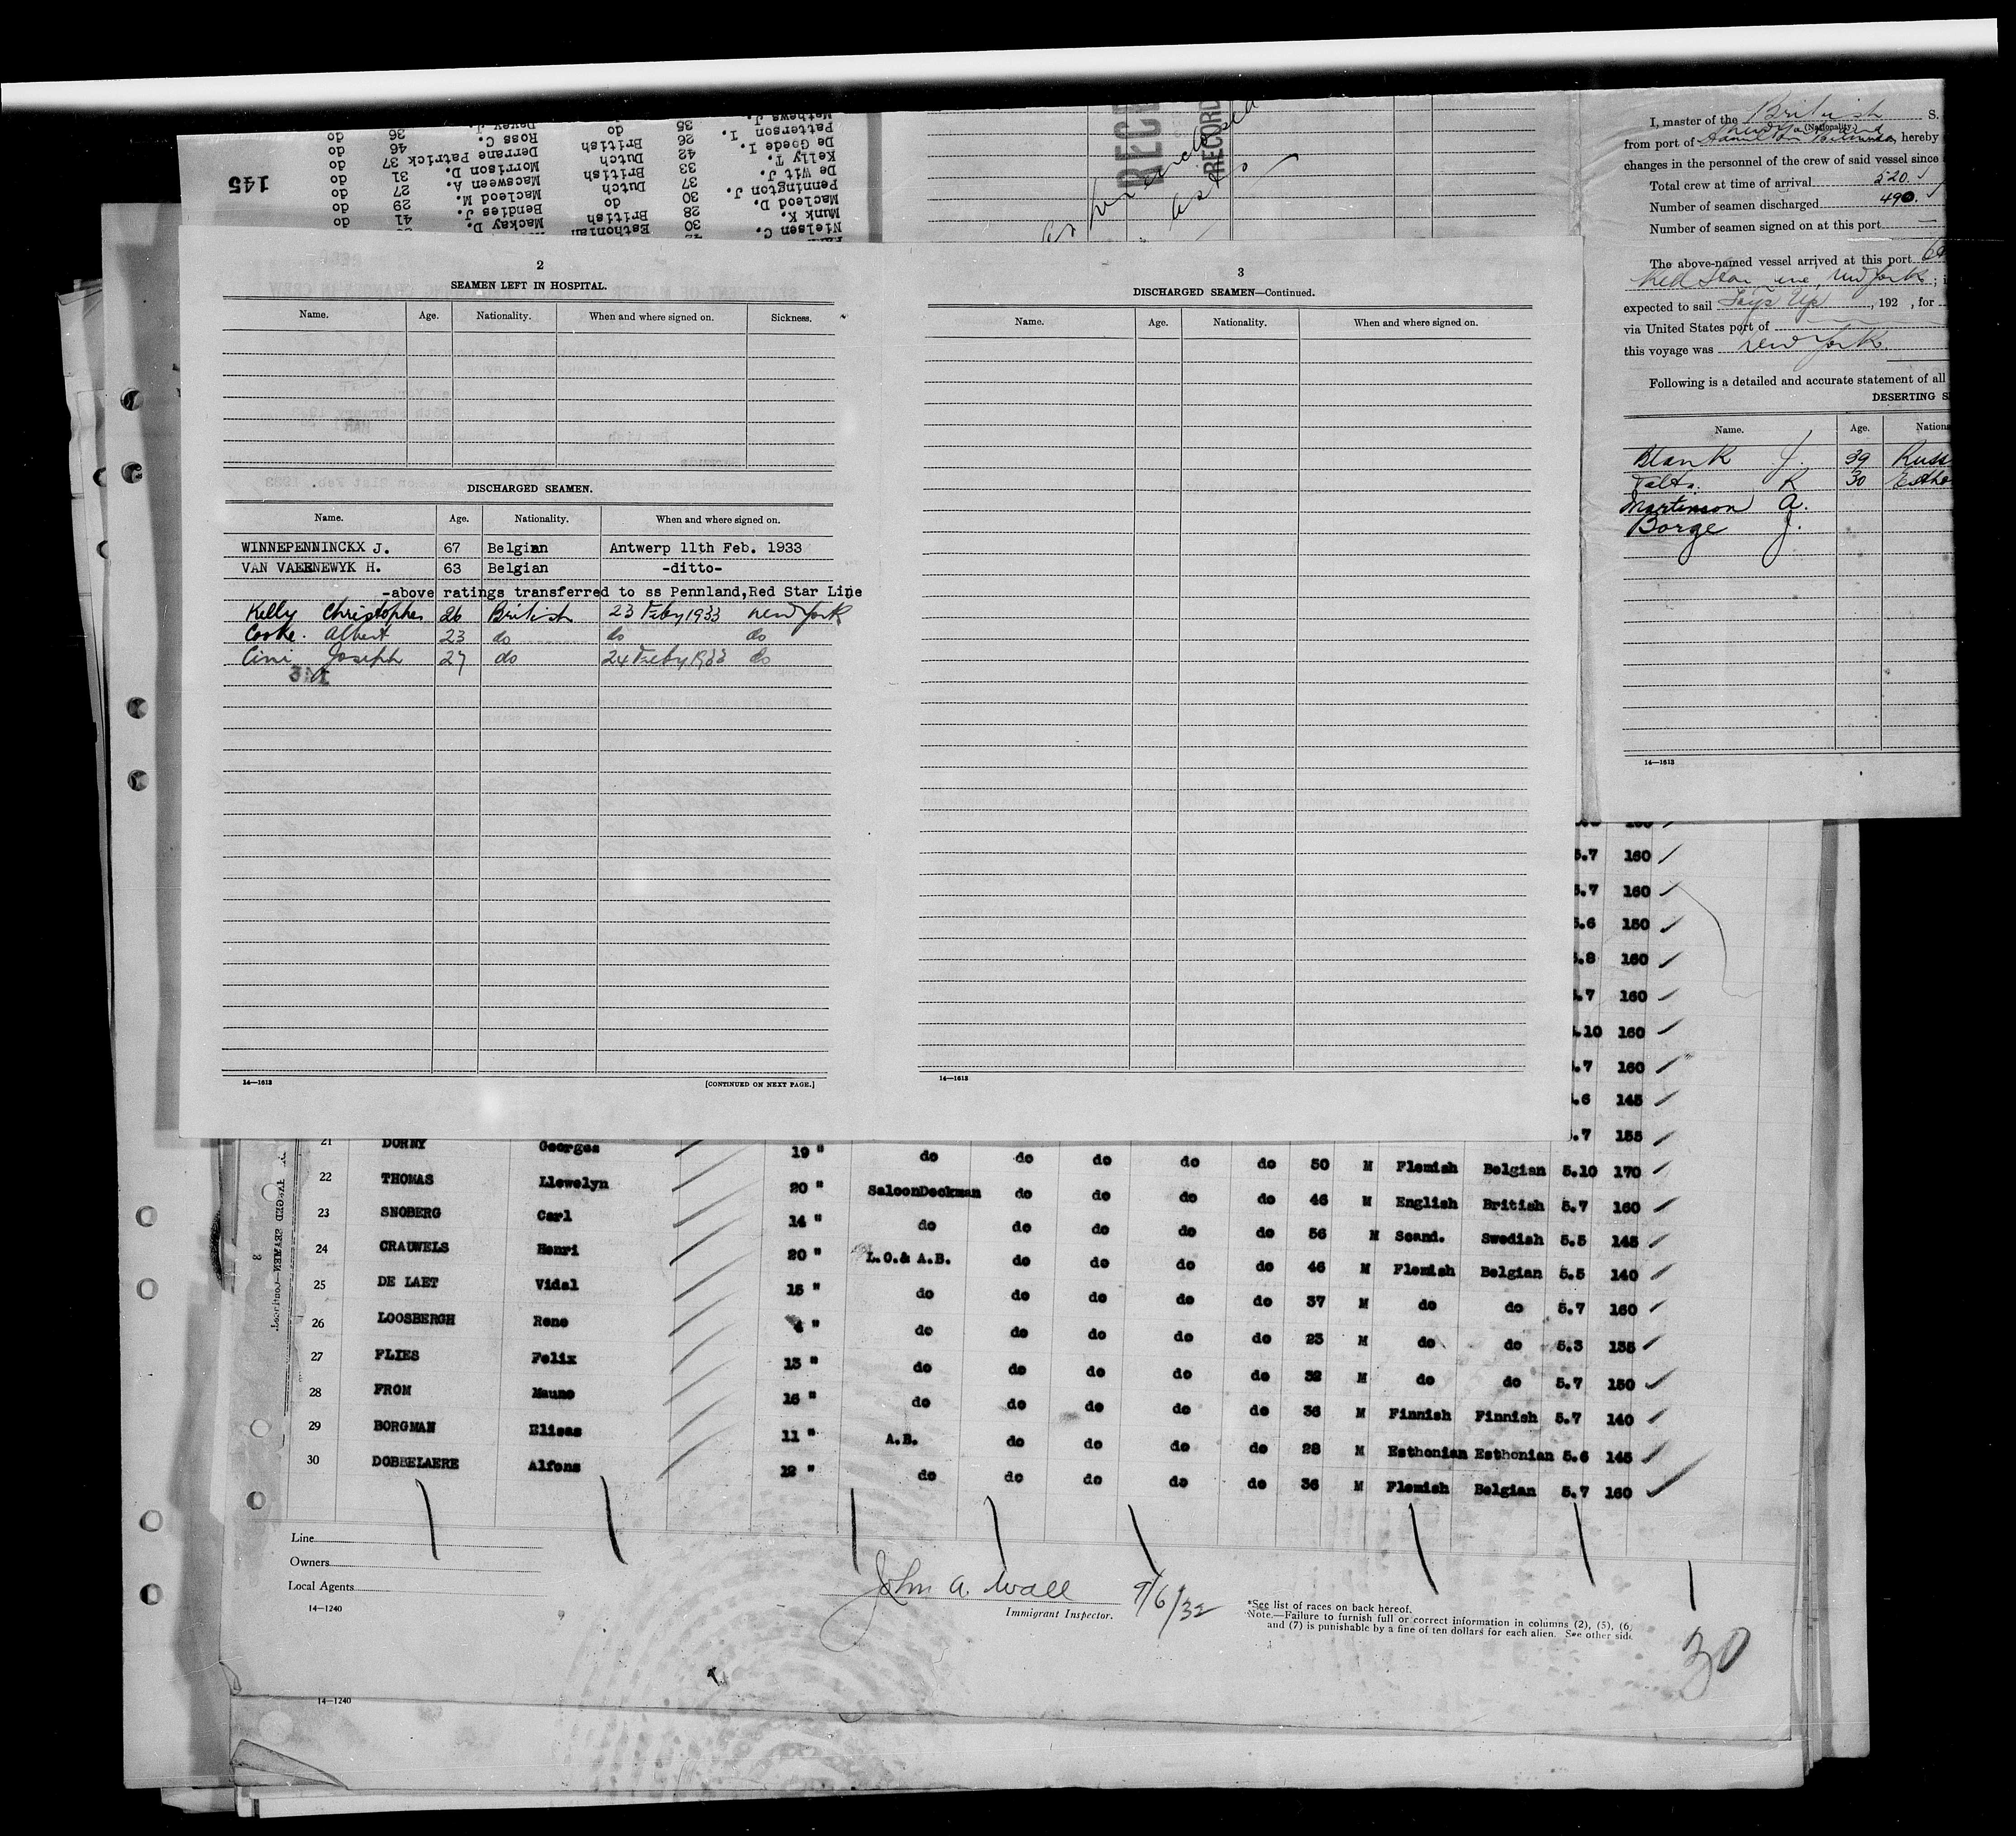 145
Mackay D. 41 do
Bendies J. 29 do
Macleod M. 27 do
Macsween A. 31 do
Morrison D. 37 do
Derrane Patrick 46 do
Ross C. 36 do
Davey J.
Nielsen C. 30 Esthonian
Munk K. 28 British
Macleod D. 30 do
Pennington J. 37 Dutch
De Wit J. 33 British
Kelly T. 42 Dutch
De Goede I. 26 British
Patterson I. 35 do
Mathews J.
RECORD
I, master of the British S.
(Nationality)
from port of Bermuda, hereby
changes in the personnel of the crew of said vessel since
Total crew at time of arrival 520.
Number of seamen discharged 490.
Number of seamen signed on at this port —
The above-named vessel arrived at this port
Red Star Line, New York ; i
expected to sail Lays Up , 192 , for
via United States port of
this voyage was New York.
Following is a detailed and accurate statement of all
DESERTING S
Name. Age. Nation
Blank J. 39 Russ
Talts. R 30 Estho
Martinson A.
Borge J.
14—1613
2
SEAMEN LEFT IN HOSPITAL.
Name. Age. Nationality. When and where signed on. Sickness.
DISCHARGED SEAMEN.
Name. Age. Nationality. When and where signed on.
WINNEPENNINCKX J. 67 Belgian Antwerp 11th Feb. 1933
VAN VAERNEWYK H. 63 Belgian -ditto-
-above ratings transferred to ss Pennland,Red Star Line
Kelly Christopher 26 British 23 Feby 1933 New York
Cooke. Albert 23 do do do
Cini Joseph 27 do 24 Feby 1933 do
14—1613 [CONTINUED ON NEXT PAGE.]
3
DISCHARGED SEAMEN—Continued.
Name. Age. Nationality. When and where signed on.
14—1613
5.7 160
5.7 160
5.6 150
5.8 160
.7 160
.10 160
.7 160
.6 145
.7 155
21 DORNY Georges 19 " do do do do do 50 M Flemish Belgian 5.10 170
22 THOMAS Llewelyn 20 " SaloonDeckman do do do do 46 M English British 5.7 160
23 SNOBERG Carl 14 " do do do do do 56 M Scand. Swedish 5.5 145
24 CRAUWELS Henri 20 " L.O.& A.B. do do do do 46 M Flemish Belgian 5.5 140
25 DE LAET Vidal 15 " do do do do do 37 M do do 5.7 160
26 LOOSBERGH Rene 4 " do do do do do 23 M do do 5.3 135
27 FLIES Felix 13 " do do do do do 32 M do do 5.7 150
28 FROM Mauno 16 " do do do do do 36 M Finnish Finnish 5.7 140
29 BORGMAN Elisas 11 " A.B. do do do do 28 M Esthonian Esthonian 5.6 145
30 DOBBELAERE Alfons 12 " do do do do do 36 M Flemish Belgian 5.7 160
Line
Owners
Local Agents
14—1240
John A. Wall 9/6/32
Immigrant Inspector.
*See list of races on back hereof.
Note.—Failure to furnish full or correct information in columns (2), (5), (6)
and (7) is punishable by a fine of ten dollars for each alien. See other side
30
14—1240